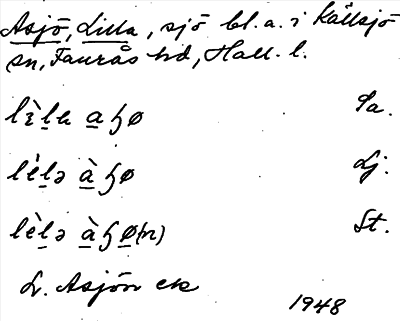 Asjö, Lilla, sjö bl. a. i Källsjö
sn, Faurås hd, Hall. l.
lɛ̀la aɧø Sa.
lèlə àɧø Lj.
lèlə àɧø(n) St.
L. Asjön ek
1948